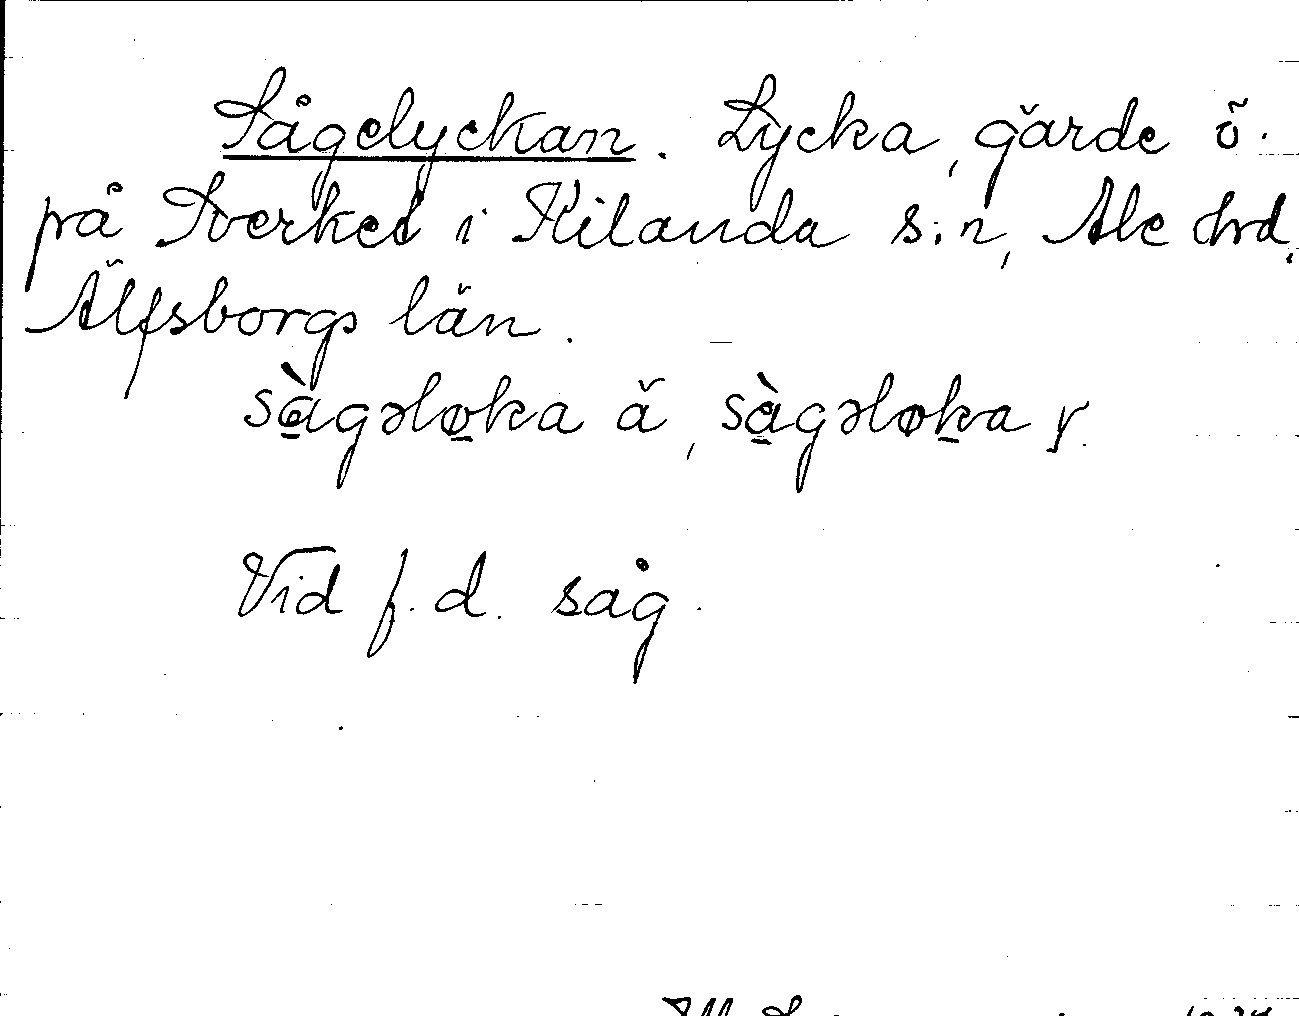 Sågelyckan. Lycka, gärde ö.
på Sverket i Kilanda s:n, Ale hrd,
Älfsborgs län.
sàgəløka ä, sàgəløka
Vid f.d. såg.